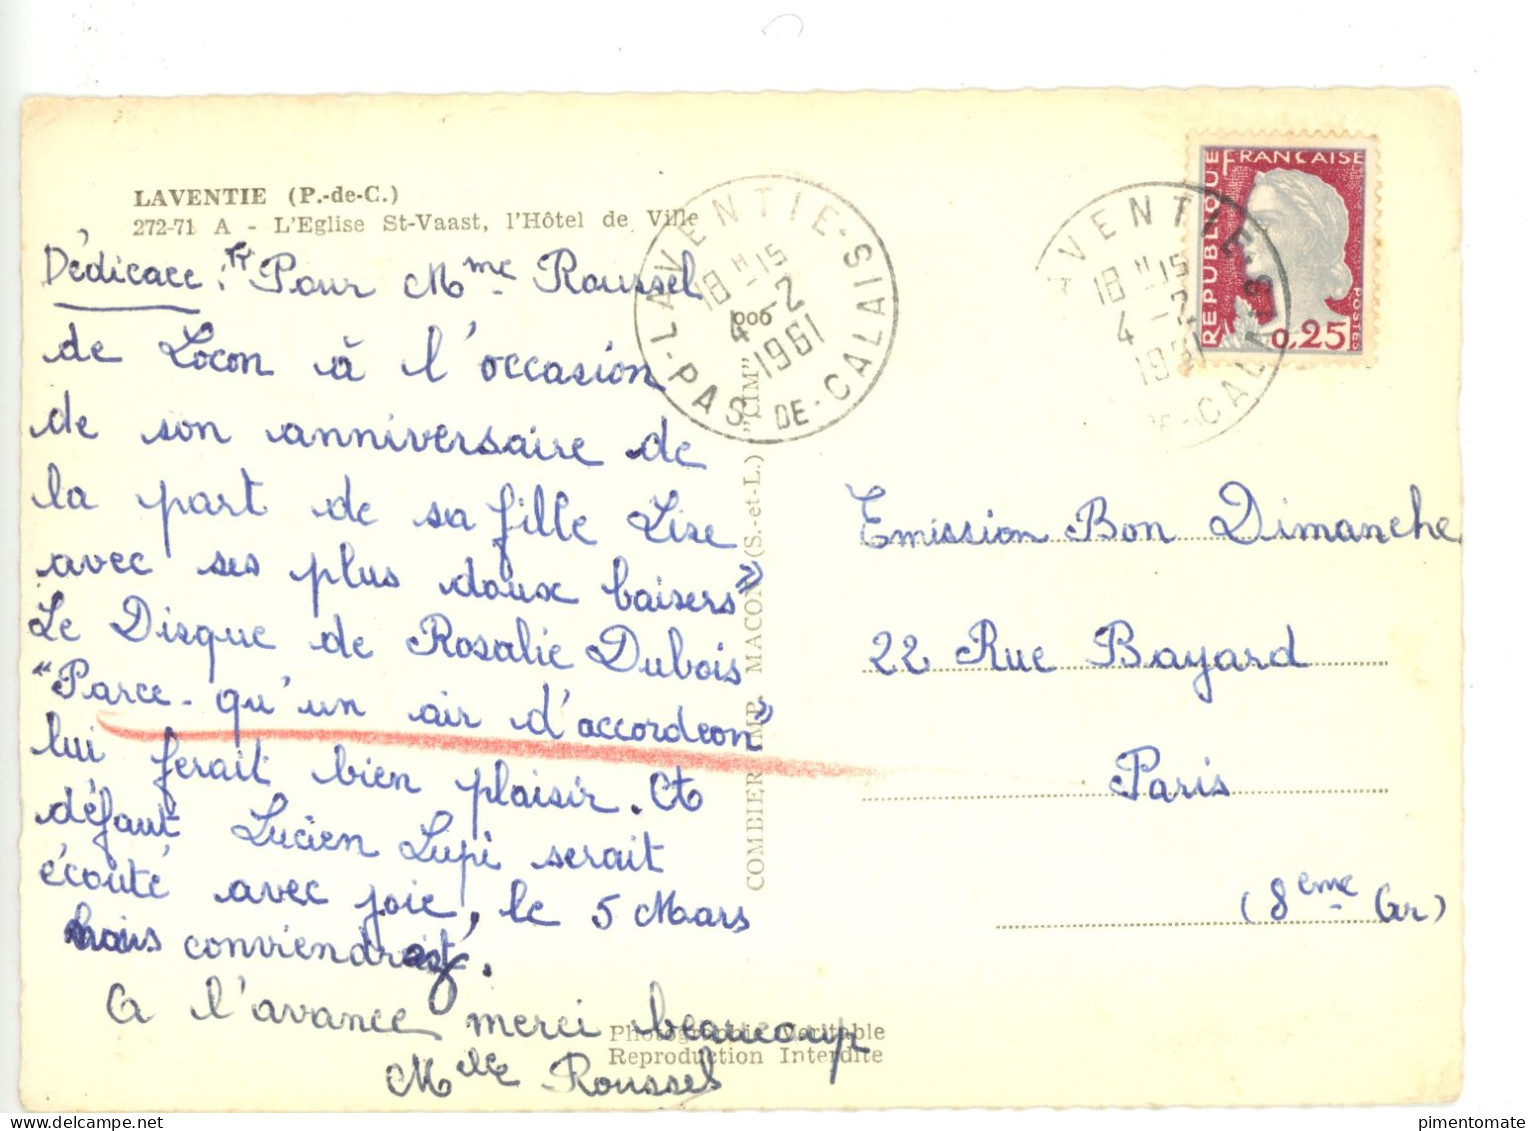 LAVENTIE (P.-de-C.)
272-71 A - L'Eglise St-Vaast, l'Hôtel de Ville
Dédicace : " Pour Mme Roussel
de Locon à l'occasion
de son anniversaire de
la part de sa fille Lise
avec ses plus doux baisers"
Le Disque de Rosalie Dubois
"Parce-qu'un air d'accordeon"
lui ferait bien plaisir. A
défaut Lucien Lupi serait
écouté avec joie, le 5 Mars
conviendrait.
A l'avance merci beaucoup
Mlle Roussel
Photographie Véritable
Reproduction Interdite
COMBIER IMP. MACON (S.-et-L.) "CIM"
LAVENTIE-SIAL-PAS-DE-CALAIS
18 H 15
4-2
1961
AVENTIE-S
18 H 15
4-2
1961
DE-CALAIS
REPUBLIQUE FRANCAISE
POSTES
0,25
Emission Bon Dimanche
22 Rue Bayard
Paris
(8eme Gr)
pimentomate